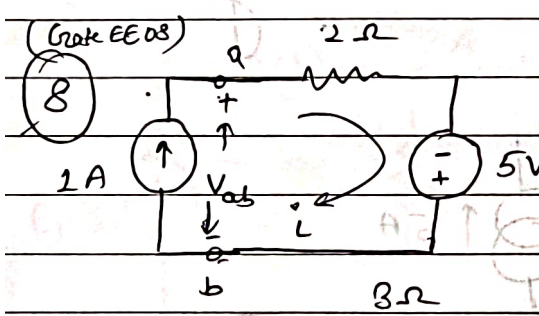 (Gate EE 08)
8
a
2 Ω
+
1 A
Vab
i
-
+
5V
-
b
3Ω